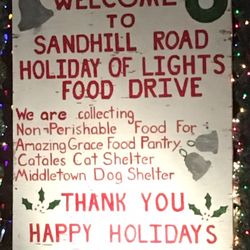 WELCOME
TO
SANDHILL ROAD
HOLIDAY OF LIGHTS
FOOD DRIVE
We are collecting
Non-Perishable Food For
Amazing Grace Food Pantry,
Catales Cat Shelter
Middletown Dog Shelter
THANK YOU
HAPPY HOLIDAYS